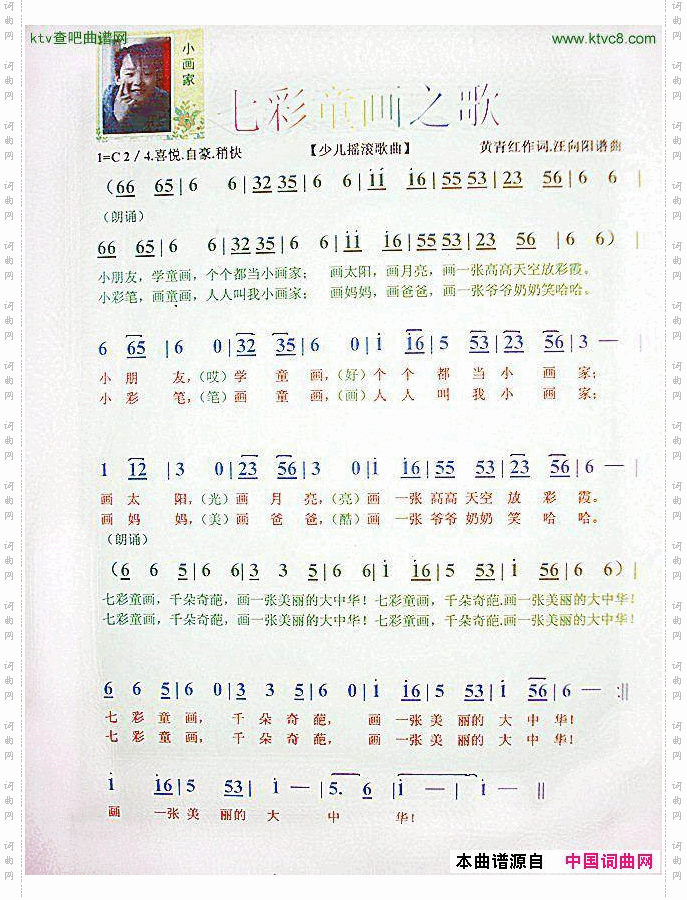 ktv查吧曲谱网
www.ktvc8.com
小画家
七彩童画之歌
1=C 2/4.喜悦.自豪.稍快 【少儿摇滚歌曲】 黄青红作词.汪向阳谱曲
(66 65|6 6|32 35|6 6|i̇i̇ i̇6|55 53|23 56|6 6|
(朗诵)
66 65|6 6|32 35|6 6|i̇i̇ i̇6|55 53|23 56|6 6)|
小朋友，学童画，个个都当小画家； 画太阳，画月亮，画一张高高天空放彩霞。
小彩笔，画童画，人人叫我小画家； 画妈妈，画爸爸，画一张爷爷奶奶笑哈哈。
6 65|6 0|32 35|6 0|i̇ i̇6|5 53|23 56|3 —|
小朋 友，(哎)学 童 画，(好)个 个 都 当 小 画 家；
小彩 笔，(笔)画 童 画，(画)人 人 叫 我 小 画 家；
1 12|3 0|23 56|3 0|i̇ i̇6|55 53|23 56|6 —|
画太 阳，(光)画 月 亮，(亮)画 一张 高高 天空 放 彩 霞。
画妈 妈，(美)画 爸 爸，(酷)画 一张 爷爷 奶奶 笑 哈 哈。
(朗诵)
(6 6 5|6 6|3 3 5|6 6|i̇ i̇6|5 53|i̇ 56|6 6)|
七彩童画，千朵奇葩，画一张美丽的大中华！七彩童画，千朵奇葩.画一张美丽的大中华！
七彩童画，千朵奇葩，画一张美丽的大中华！七彩童画，千朵奇葩.画一张美丽的大中华！
6 6 5|6 0|3 3 5|6 0|i̇ i̇6|5 53|i̇ 56|6 — :||
七 彩 童 画， 千 朵 奇 葩， 画 一张 美 丽的 大 中 华！
七 彩 童 画， 千 朵 奇 葩， 画 一张 美 丽的 大 中 华！
i̇ i̇6|5 53|i̇ —|5. 6|i̇ —|i̇ —||
画 一张 美 丽的 大 中 华！
本曲谱源自 中国词曲网